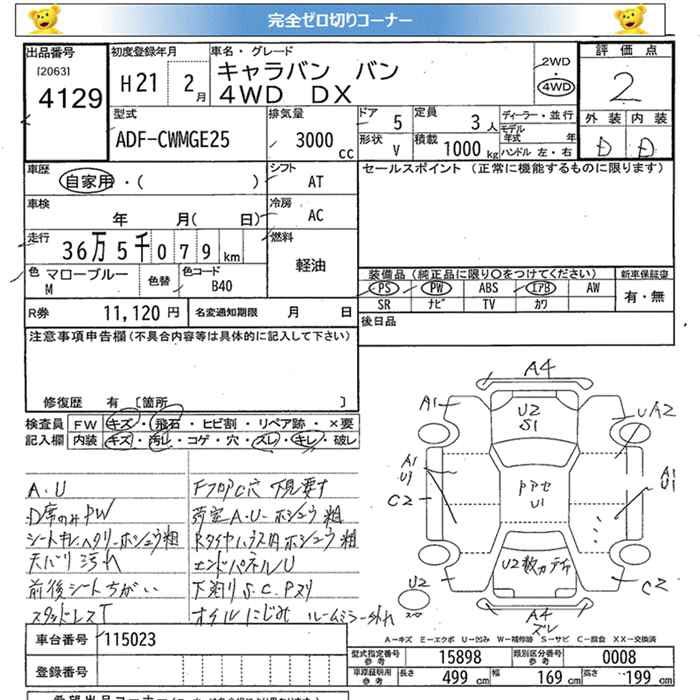 完全ゼロ切りコーナー
出品番号
[2063]
4129
初度登録年月
H21 2月
車名・グレード
キャラバン バン
4WD DX
2WD
4WD
評価点
2
外装 内装
D D
型式
ADF-CWMGE25
排気量
3000 cc
ドア
5
定員
3人
形状
V
積載
1000 kg
ディーラー・並行
モデル年式 年
ハンドル 左・右
車歴
自家用・( )
シフト
AT
セールスポイント (正常に機能するものに限ります)
車検
年 月( 日)
冷房
AC
走行
36万5千079 km
燃料
軽油
色
マローブルーM
色替
色コード
B40
装備品(純正品に限り○をつけてください)
新車保証書
PS PW ABS エアB AW
有・無
SR ナビ TV カワ
R券
11,120円
名変通知期限 月 日
後日品
注意事項申告欄(不具合内容等は具体的に記入して下さい)
修復歴 有 [箇所 ]
検査員記入欄
FW キズ・飛石・ヒビ割・リペア跡・×要
内装 キズ・汚レ・コゲ・穴・スレ・キレ・破レ
A.U
D席のみPW
シートキレ
天バリ汚れ
前後シートちがい
スタッドレスT
荷室A.U-ホシュウ粗
エンドパネルU
下廻りS.C.Pズリ
オイルにじみ ルームミラー外れ
A4
A1
U2
S1
UA2
A1
U1
C2
U1
A1
U1
U2
C2
A4
ズレ
A-キズ E-エクボ U-凹み W-補修跡 S-サビ C-腐食 XX-交換済
車台番号
115023
登録番号
型式指定番号参考
15898
類別区分番号参考
0008
車庫証明用参考
長さ 499 cm
幅 169 cm
高さ 199 cm